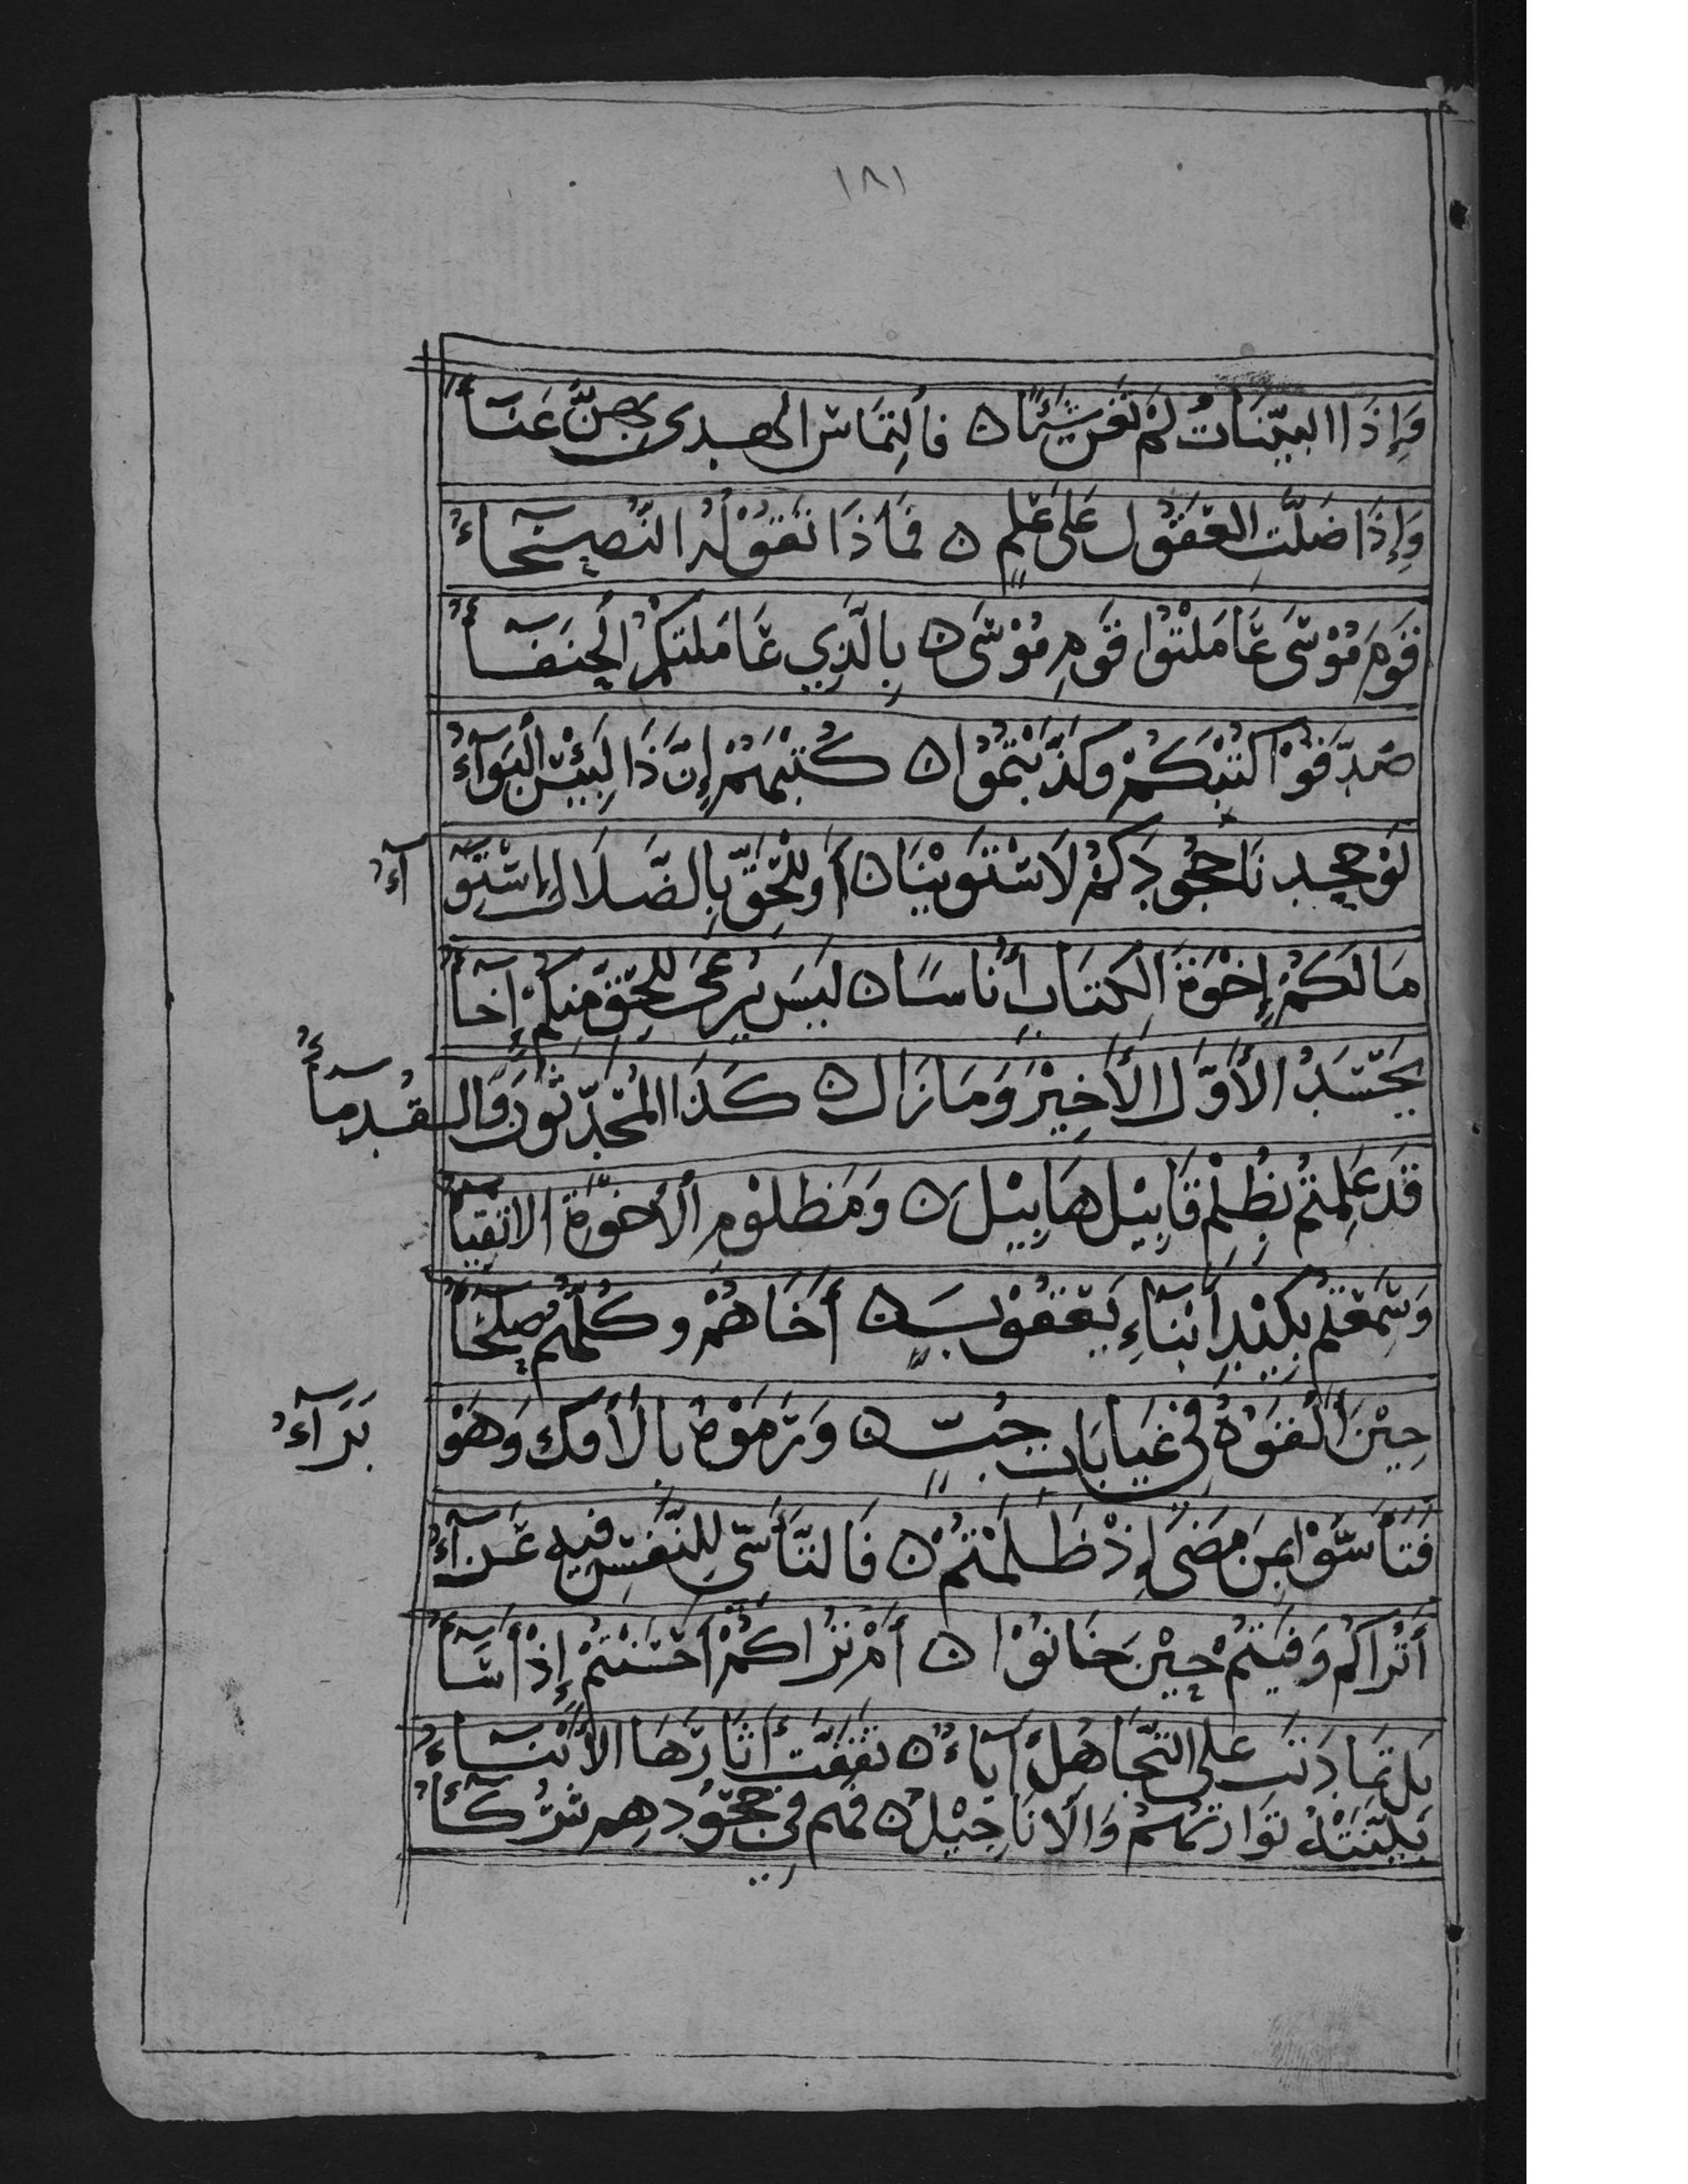 ١٨١
وَإِذَا البَيِّنَاتُ لَمْ تُغْنِ شَيْئًا ۝ فَالْتِمَاسُ الهُدى بِهِنَّ عَنَآءُ
وَإِذَا ضَلَّتِ العُقُولُ عَلَى عِلْمٍ ۝ فَمَاذَا تَقُوْلُهُ النُّصَحَآءُ
قَوْمَ مُوْسَى عَامَلْتُوْا قَوْمِ مُوْسَى ۝ بِالَّذِي عَامَلَتْكُمُ الحُنَفَآءُ
صَدَّقُوْا كُتْبَكُمْ وَكَذَّبْتُمُوْا ۝ كُتْبَهُمْ إِنَّ ذَا لَبِئْسَ الْبَوَآءُ
لَوْ جَحِدْنَا جُحُوْدَكُمْ لَاسْتَوَيْنَا ۝ أَوَلِلْحَقِّ بِالضَّلَالِ اسْتِوَآءُ
مَالَكُمْ إِخْوَةَ الكِتَابِ أُنَاسًا ۝ لَيْسَ يُرْعَى لِلْحَقِّ مِنْكُمْ إِخَآءُ
يَحْسُدُ الأَوَّلُ الأَخِيْرَ وَمَا زَالَ ۝ كَذَا المُحْدَثُوْنَ وَالقُدَمَآءُ
قَدْ عَلِمْتُمْ بِظُلْمِ قَابِيْلَ هَابِيْلَ ۝ وَمَظْلُوْمِ الأَخْوَةِ الاتْقِيَآءُ
وَسَمِعْتُمْ بِكَيْدِ أَبْنَآءِ يَعْقُوْبٍ ۝ أَخَاهُمْ وَكُلُّهُمْ صُلَحَآءُ
حِيْنَ أَلْقَوْهُ فِي غَيَابَاتِ جُبٍّ ۝ وَرَمَوْهُ بِالْأفْكِ وَهْوَ بَرَآءُ
فَتَأَسَّوْا بِمَنْ مَضَى إِذْ ظَلَمْتُمْ ۝ فَالتَّأَسِّي لِلنَّفْسِ فِيهِ عَزَآءُ
أَتُرَاكُمْ وَفَيْتُمْ حِيْنَ خَانُوْا ۝ أَمْ تُرَاكُمْ أَحْسَنْتُمْ إِذْ أَسَآءُ
بَلْ تَمَادَتْ عَلَى التَّجَاهُلِ آبَاءٌ ۝ تَقَفَّتْ أَثَارَهَا الأَبْنَآءُ
بَيَّنَتْهُ تَوْارَتُهُمْ وَالأنَاجِيْلُ ۝ فَهُمْ فِي جُحُوْدِهِمْ شُرَكَآءُ